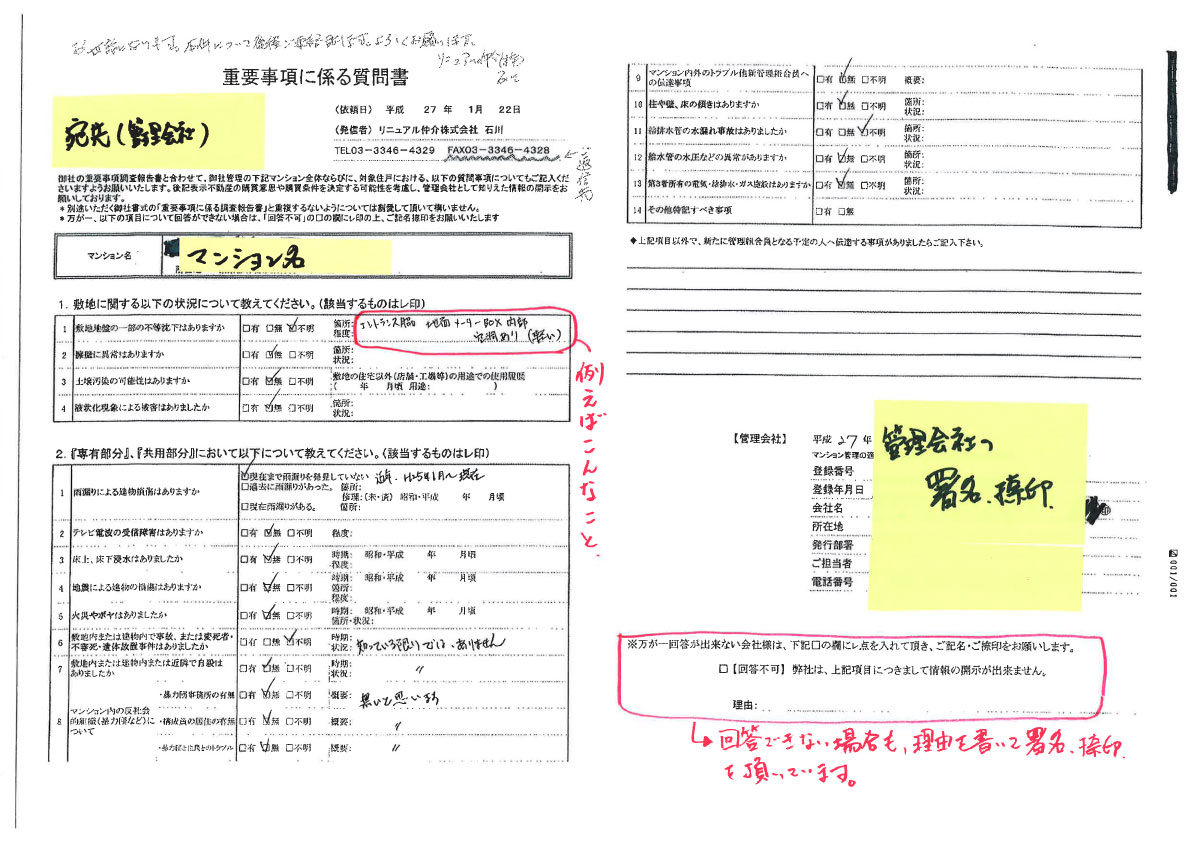 お世話になります。本件について後ほどご連絡致します。よろしくお願い致します。
リニュアル仲介
重要事項に係る質問書
宛先(管理会社)
(依頼日) 平成 27 年 1月 22日
(発信者) リニュアル仲介株式会社 石川
TEL03-3346-4329 FAX03-3346-4328
←ご返信先
御社の重要事項調査報告書と合わせて、御社管理の下記マンション全体ならびに、対象住戸における、以下の質問事項についてもご記入くだ
さいますようお願いいたします。後記表示不動産の購買意思や購買条件を決定する可能性を考慮し、管理会社として知りえた情報の開示をお
願いしております。
* 別途いただく御社書式の「重要事項に係る調査報告書」と重複するないようについては割愛して頂いて構いません。
* 万が一、以下の項目について回答ができない場合は、「回答不可」の□の欄にレ印の上、ご記名捺印をお願いいたします
マンション名 マンション名
1. 敷地に関する以下の状況について教えてください。(該当するものはレ印)
1 敷地地盤の一部の不等沈下はありますか □有 □無 ☑不明 箇所: エントランス脇 地面メーターBOX内部
程度: 空洞あり (軽い)
2 擁壁に異常はありますか □有 ☑無 □不明 箇所:
状況:
3 土壌汚染の可能性はありますか □有 ☑無 □不明 敷地の住宅以外(店舗・工場等)の用途での使用履歴
( 年 月頃 用途: )
4 液状化現象による被害はありましたか □有 ☑無 □不明 箇所:
状況:
例えばこんなこと、
2. 『専有部分』、『共用部分』において以下について教えてください。(該当するものはレ印)
1 雨漏りによる建物損傷はありますか ☑現在まで雨漏りを発見していない 近年 H25年1月〜現在
□過去に雨漏りがあった。 箇所:
修理:(未・済) 昭和・平成 年 月頃
□現在雨漏りがある。 箇所:
2 テレビ電波の受信障害はありますか □有 ☑無 □不明 程度:
3 床上、床下浸水はありましたか □有 ☑無 □不明 時期: 昭和・平成 年 月頃
程度:
4 地震による建物の損傷はありますか □有 ☑無 □不明 時期: 昭和・平成 年 月頃
箇所:
程度:
5 火災やボヤはありましたか □有 ☑無 □不明 時期: 昭和・平成 年 月頃
箇所・状況:
6 敷地内または建物内で事故、または変死者・
不審死・遺体放置事件はありましたか □有 □無 ☑不明 時期:
状況: 知っている限りでは、ありません
7 敷地内または建物内または近隣で自殺は
ありましたか □有 ☑無 □不明 時期: 〃
状況:
8 マンション内の反社会
的組織(暴力団など)に
ついて
・暴力団事務所の有無 □有 ☑無 □不明 概要: 無いと思います
・構成員の居住の有無 □有 ☑無 □不明 概要: 〃
・暴力団と住民とのトラブル □有 ☑無 □不明 概要: 〃
9 マンション内外のトラブル他新管理組合員へ
の伝達事項 □有 ☑無 □不明 概要:
10 柱や壁、床の傾きはありますか □有 ☑無 □不明 箇所:
状況:
11 給排水管の水漏れ事故はありましたか □有 □無 ☑不明 箇所:
状況:
12 給水管の水圧などの異常がありますか □有 ☑無 □不明 箇所:
状況:
13 第3者所有の電気・給排水・ガス施設はありますか □有 ☑無 □不明 箇所:
状況:
14 その他特記すべき事項 □有 □無
◆上記項目以外で、新たに管理組合員となる予定の人へ伝達する事項がありましたらご記入下さい。
【管理会社】 平成 27 年
マンション管理の適
登録番号
登録年月日
会社名
所在地
発行部署
ご担当者
電話番号
管理会社の
署名、捺印
印
001/001
※万が一回答が出来ない会社様は、下記□の欄にレ点を入れて頂き、ご記名・ご捺印をお願いします。
□【回答不可】 弊社は、上記項目につきまして情報の開示が出来ません。
理由:
↳回答できない場合も、理由を書いて署名、捺印
を頂いています。